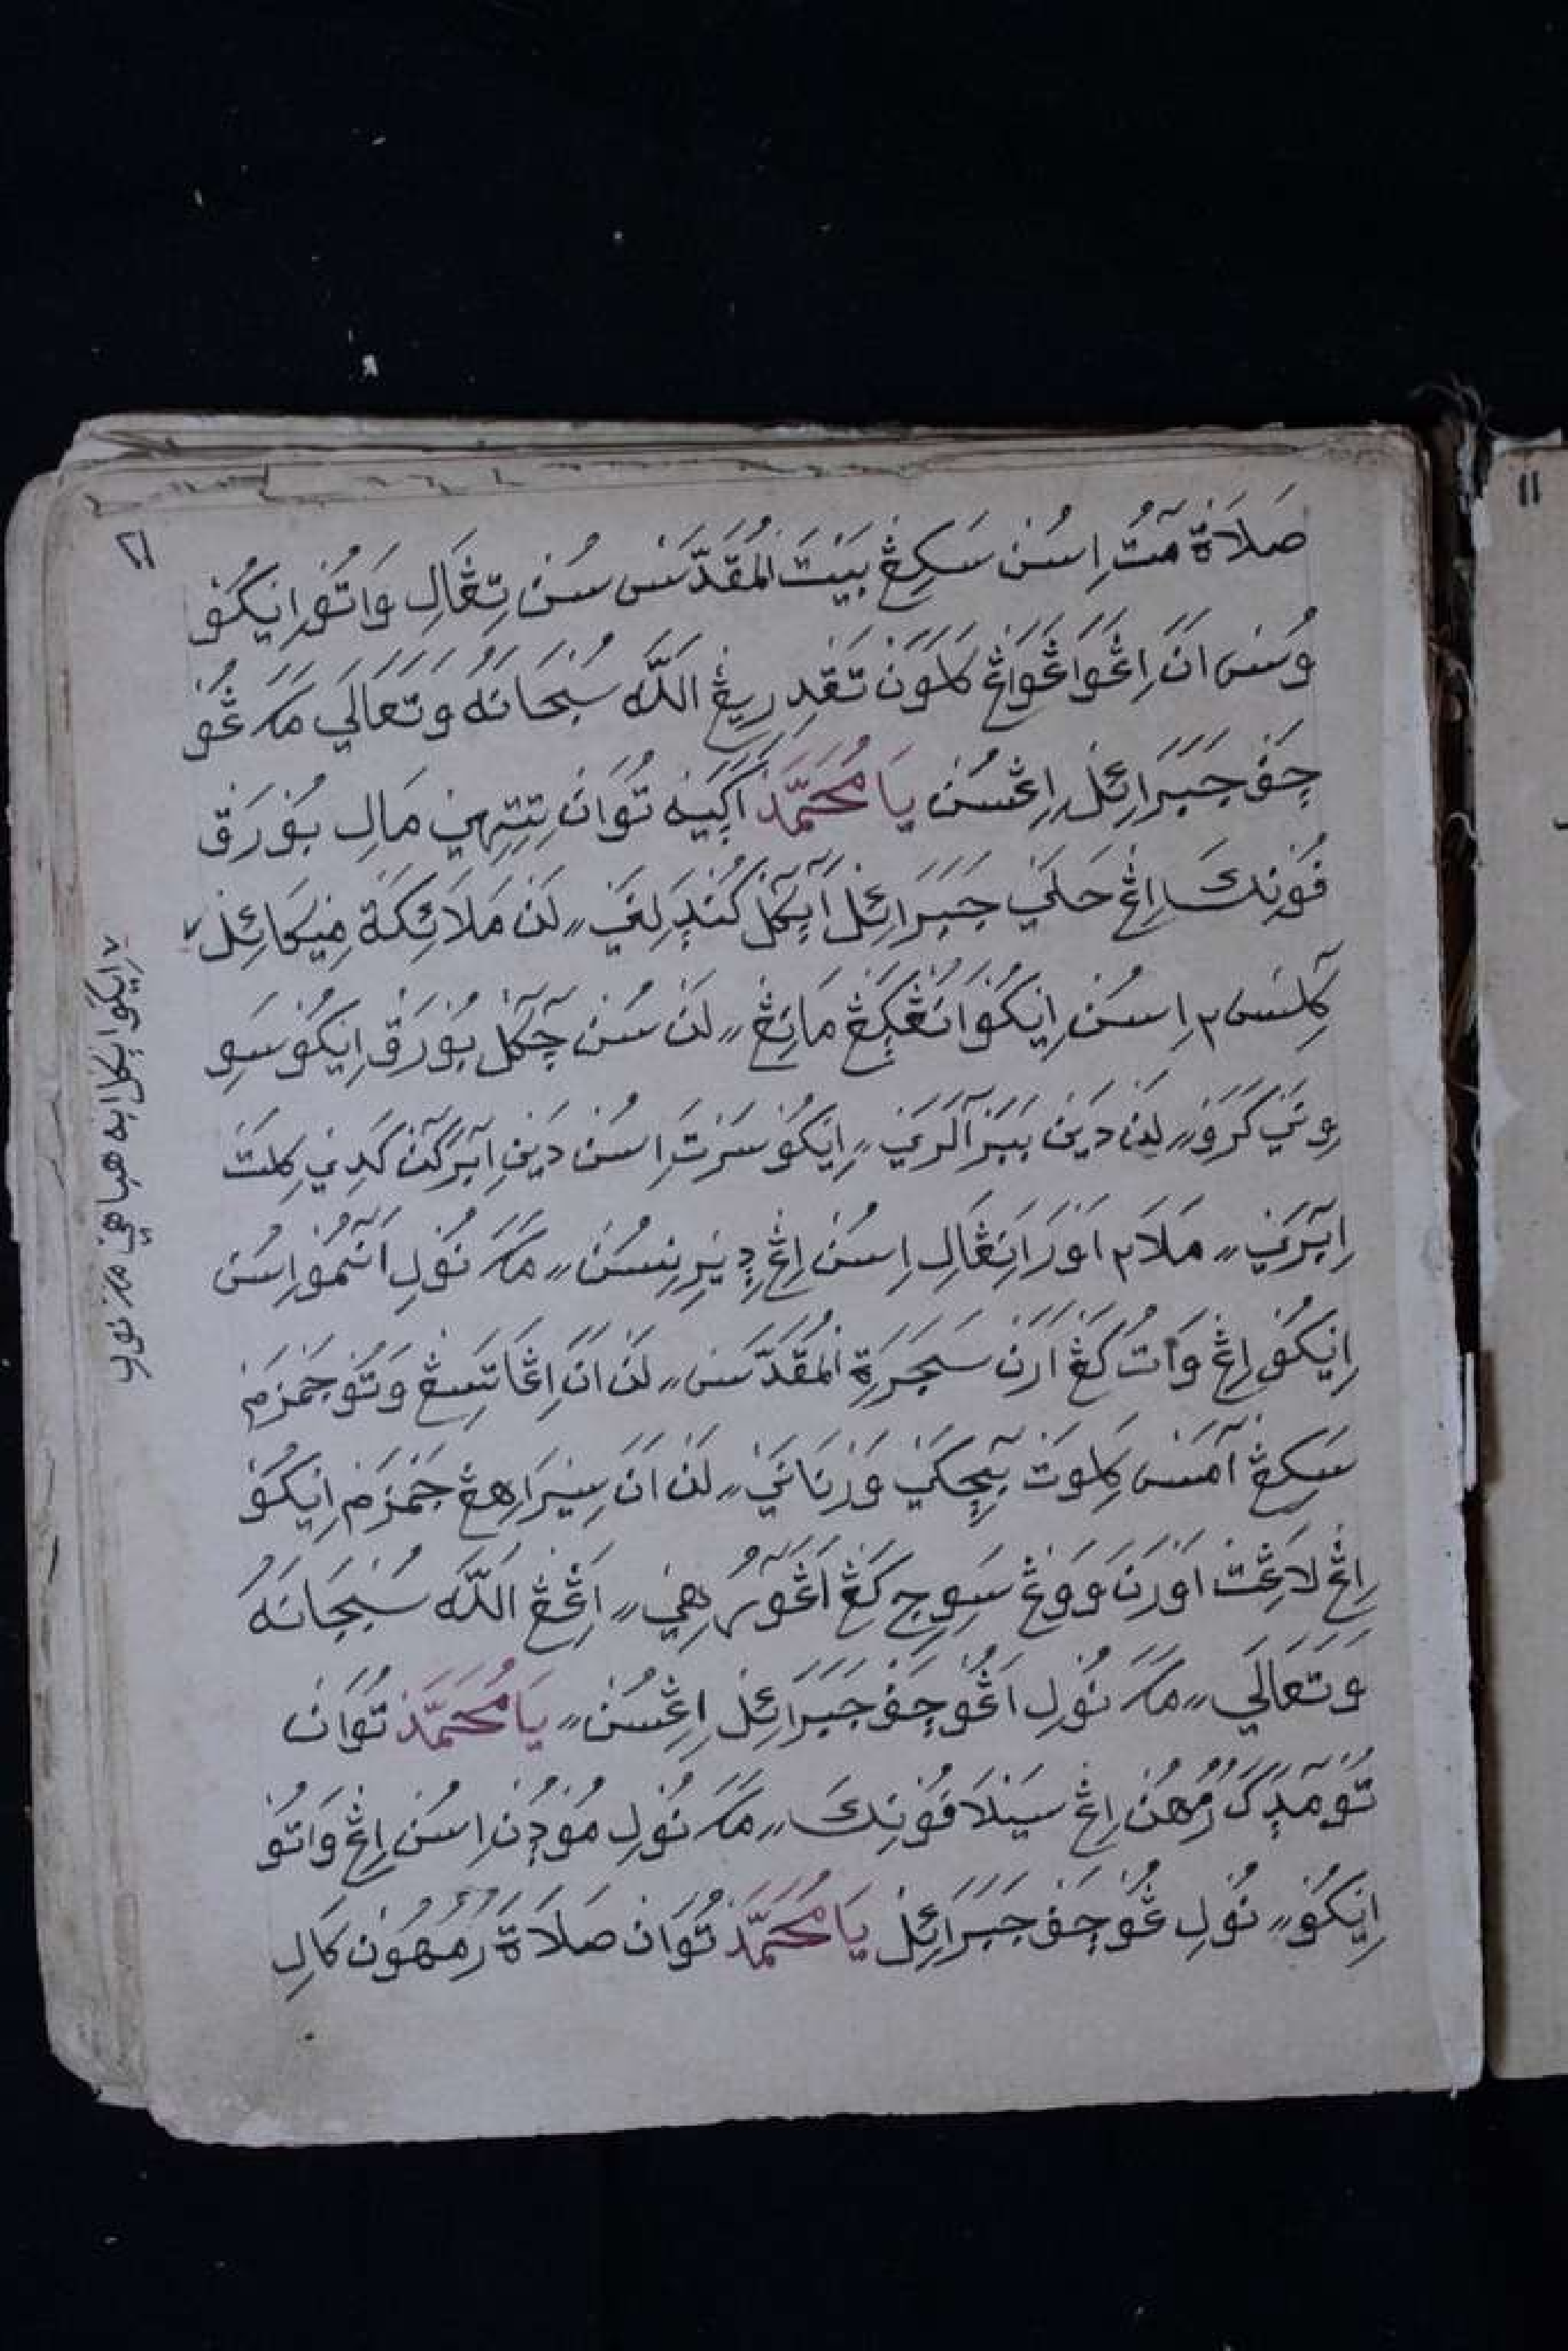 ٢١
صَلَاةْ مٓتُ اِسُنْ سَكِڠْ بَيْتَ الْمُقَدَّسْ سُنْ تِڠَالِ وَاتُوْ اِيْكُوْ
وُسْ اَنَ اِڠْوَاڠْوَاڠْ كَلَوَنْ تَقْدِرِيڠْ اَللّٰه سُبْحَانَهُ وَتَعَالَي مَكَ ڠُوْ
چَفْ جَبَرَائِلْ اِڠْسُنْ يَا مُحَمَّدْ اَكَيَيْه تُوَانْ تِتِيْهِيْ مَالِ بُوْرَقْ
فُوْنِكَ اِڠْ حَلَيْ جَبَرَائِلْ اَيْكَلْ كُنْدَلِنَيْ لَنْ مَلَائِكَةْ مِيْكَائِلْ
كٓلَسٓ٢ اِسُنْ اِيْكُوْ اَنَڠْكٓڠْ مَانِڠْ لَنْ سُنْ چٓكَلْ بُوْرَقْ اِيْكُوْ سَوِ
وِنَيْ كَرَوْ لَنْ دَيْنْ بَبَرْ آلَرَيْ اِيْكُوْ سَرْتَ اِسُنْ دَيْنِ اَبٓرَكٓنْ كَدِيْ كِلَتْ
اِبٓرَيْ مَلَام اَوْرَ اَنِڠَالِ اِسُنْ اِڠْ دِيْرِنِسُنْ مَكَ نُوْلِ اَنٓمُوْ اِسُنْ
اِيْكُوْ اِڠْ وَاتُ كَڠْ اَرَنْ سَجَرَةِ الْمُقَدَّسْ لَنْ اَنَ اِڠْاَتَسِڠْ وَتُوْ جَمْزَمْ
سَكِڠْ اٰمَسْ كَلَوَتْ بٓچِكَيْ وَرْنَانَيْ لَنْ اَنَ سِيْرَارَهِڠْ جَمْزَمْ اِيْكُوْ
اِڠْ لَاڠِتْ اَوْرَنَ وَوڠْ سَوِجِ كَڠْ اَڠَوٓرُهِيْ اَڠِڠْ اَللّٰه سُبْحَانَهُ
وَتَعَالَي مَكَ نُوْلِ اَڠُوْچَفْ جَبَرَائِلْ اِڠْسُنْ يَا مُحَمَّدْ تُوَانْ
تُوْمَدَكْ رُمُهُنْ اِڠْ سَيْلَا فُوْنِكَ مَكَ نُوْلِ مُوْدُنْ اِسُنْ اِڠْ وَاتُوْ
اِيْكُوْ نُوْلِ ڠُوْچَفْ جَبَرَائِلْ يَا مُحَمَّدْ تُوَانْ صَلَاةْ رُمُهُوْن كَالِ